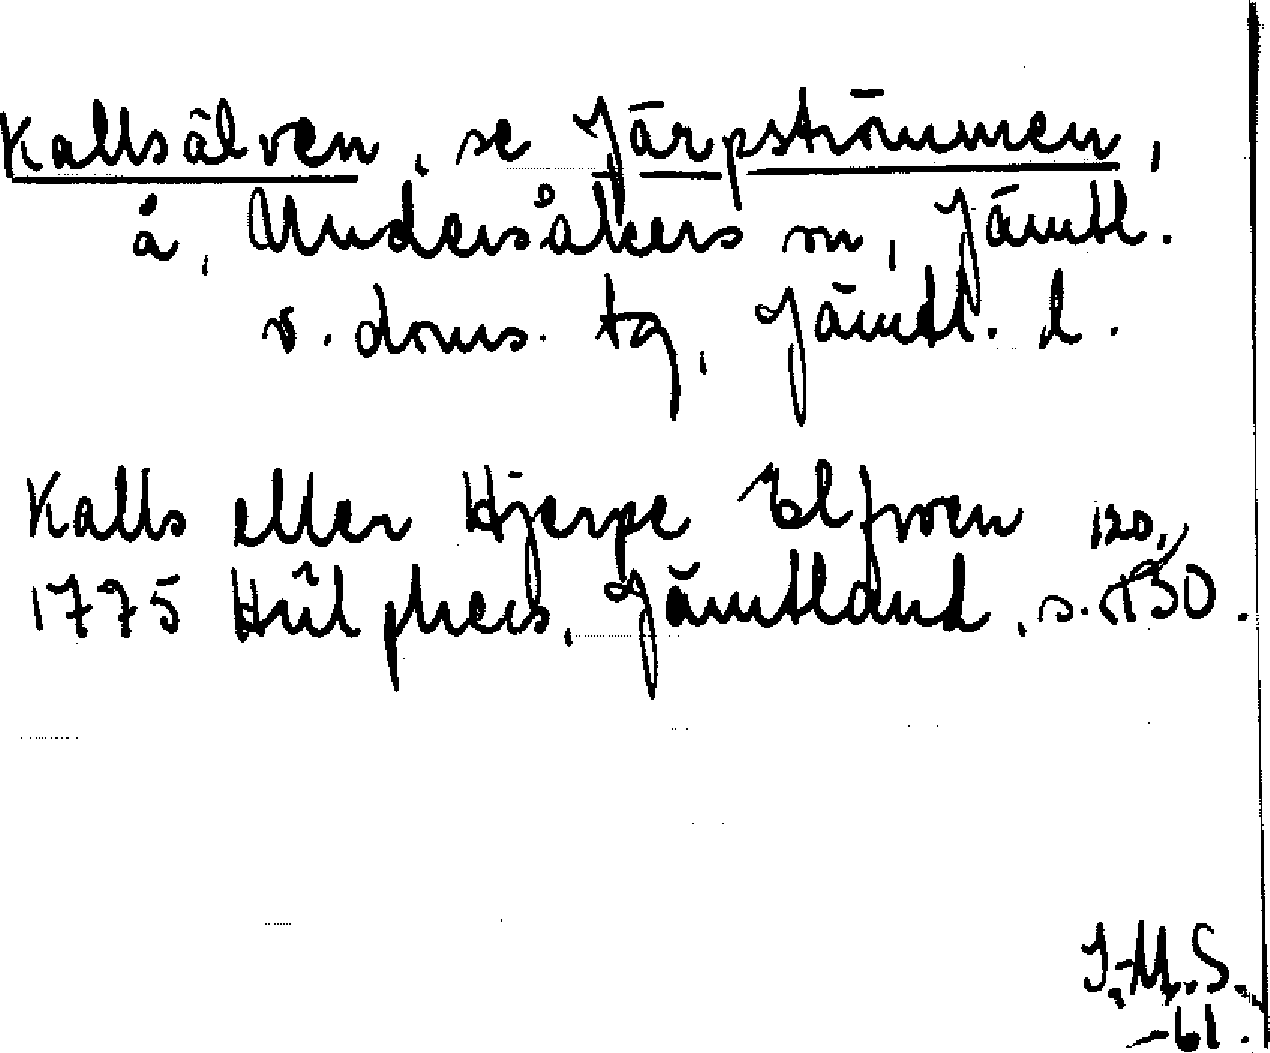 Kallsälven, se Järpströmmen,
å, Undersåkers sn, Jämtl.
v. doms. tg, Jämtl. l.
Kalls eller Hjerpe Elfwen 120,
1775 Hülphers, Jämtland, s. 130.
I-M.S.
-61.